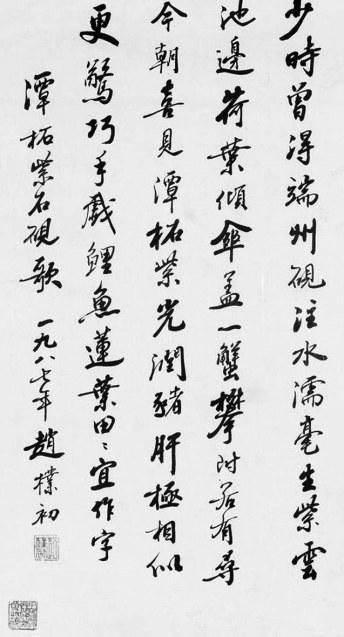 少時曾得端州硯注水濡毫生紫雲
池邊荷葉傾傘蓋一蟹攀附若有尋
今朝喜見潭柘紫光潤豬肝極相似
更驚巧手戲鯉魚蓮葉田〻宜作字
潭柘紫石硯歌 一九八七年 趙樸初